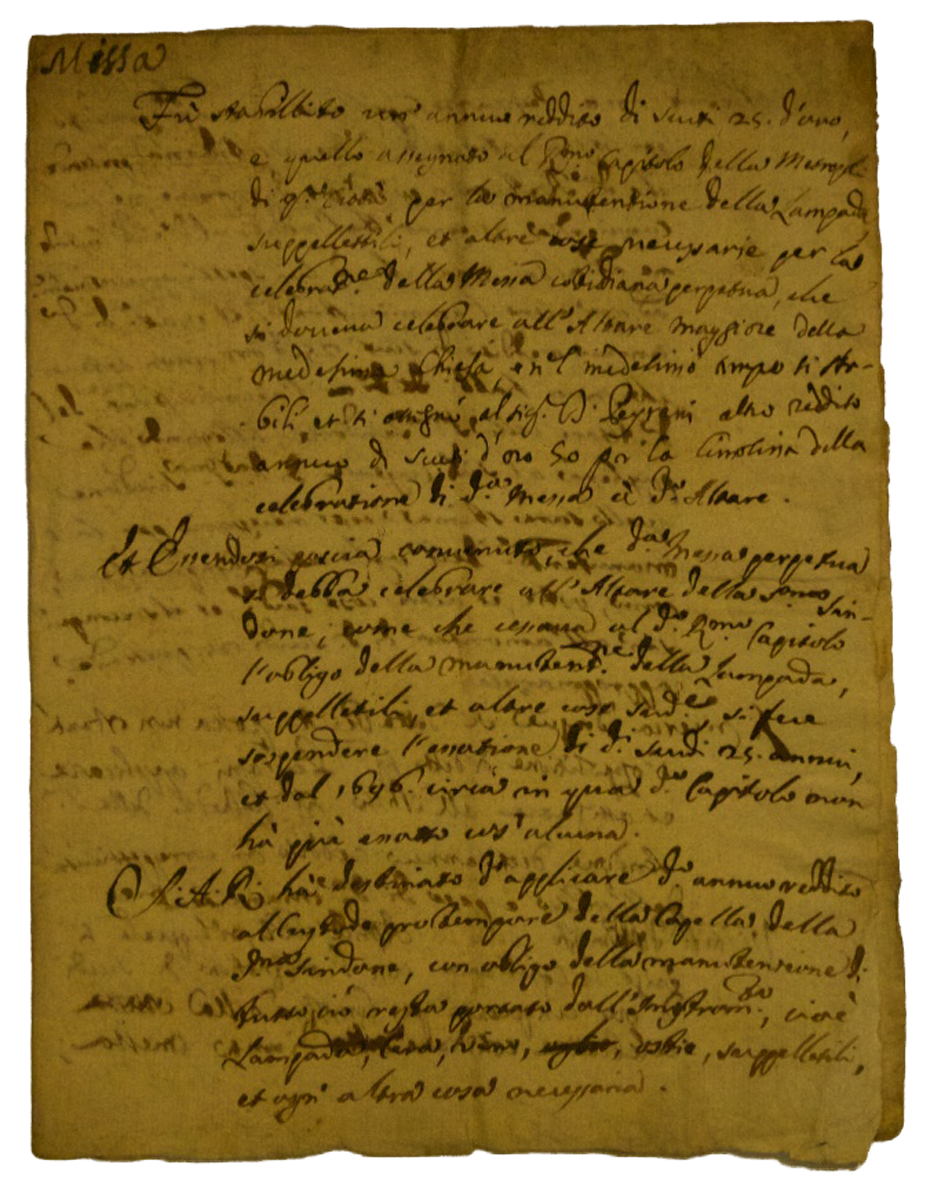 Missa
Fù stabilito un' annuo reddito di scuti 25. d'oro,
e quello assegnato al R.mo Capitolo della Metropoli
di q.ta Città per la manutentione della Lampada
suppellettili, et altre cose necessarie per la
celebrat.ne della Messa cotidiana perpetua, che
si doueua celebrare all'Altare maggiore della
medesima Chiesa, e nel medesimo tempo si sta-
bilì, et si assegnò al sig. D. Peyrani altro reddito
annuo di scuti d'oro 50 per la limosina della
celebratione di d.a Messa à d.o Altare.
Et Essendosi poscia conuenuto, che d.a Messa perpetua
si debba celebrare all'Altare della S.ma Sin-
done, come che cessaua al d.o R.mo Capitolo
l'obligo della manutent.ne della Lampada,
suppelletili, et altre cose sud.e si fece
sospendere l'esatione di d.i scudi 25. annui,
et dal 1696. circa in quà d.o Capitolo non
hà più esatto cos' alcuna.
S. A. R. hà destinato d'applicare d.o annuo reddito
al Custode protempore della Capella della
S.ma Sindone, con obligo della manutensione di
tutto ciò resta portato dall'Instrom.to, cioè
Lampada, Cera, vino, ostie, suppelletili,
et ogn' altra cosa necessaria.